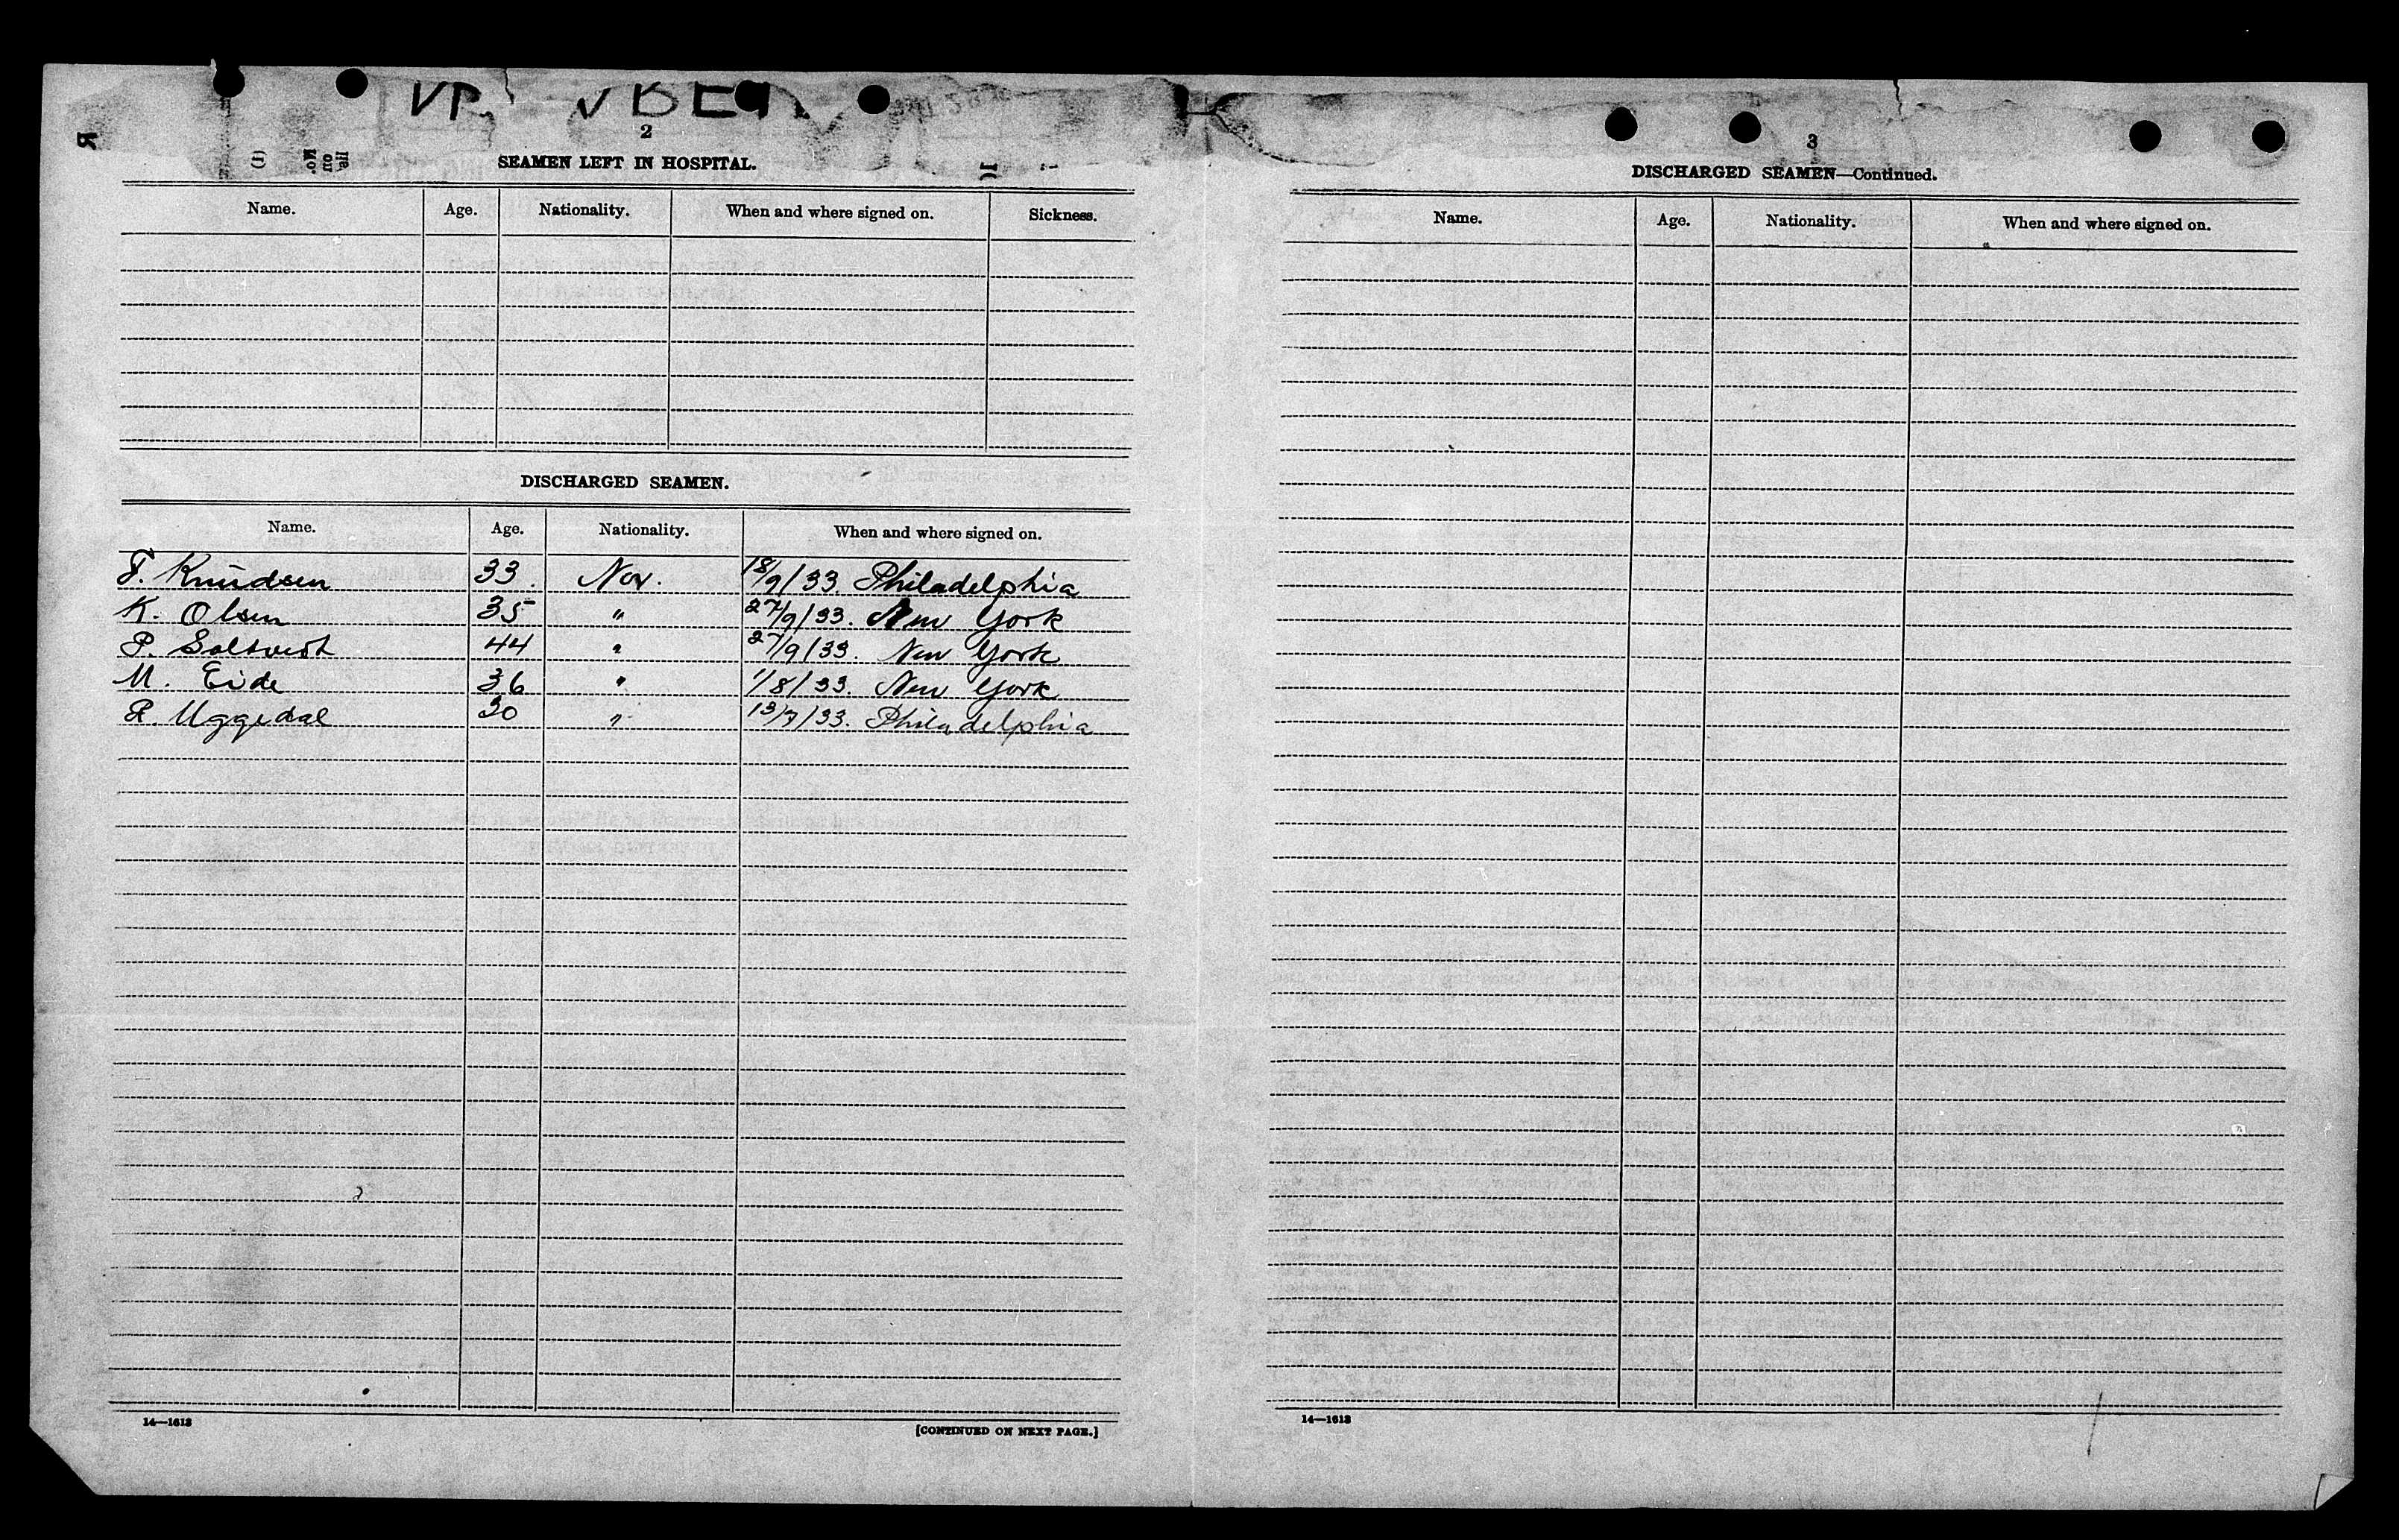 2
SEAMEN LEFT IN HOSPITAL.
Name. Age. Nationality. When and where signed on. Sickness.
DISCHARGED SEAMEN.
Name. Age. Nationality. When and where signed on.
T. Knudsen 33. Nor. 18/9/33. Philadelphia
K. Olsen 35 " 27/9/33. New York
P. 44 " 27/9/33. New York
M. Eide 36 " 1/8/33. New York
R. Uggedal 30 " 13/7/33. Philadelphia
14—1613
[CONTINUED ON NEXT PAGE.]
3
DISCHARGED SEAMEN—Continued.
Name. Age. Nationality. When and where signed on.
14—1613